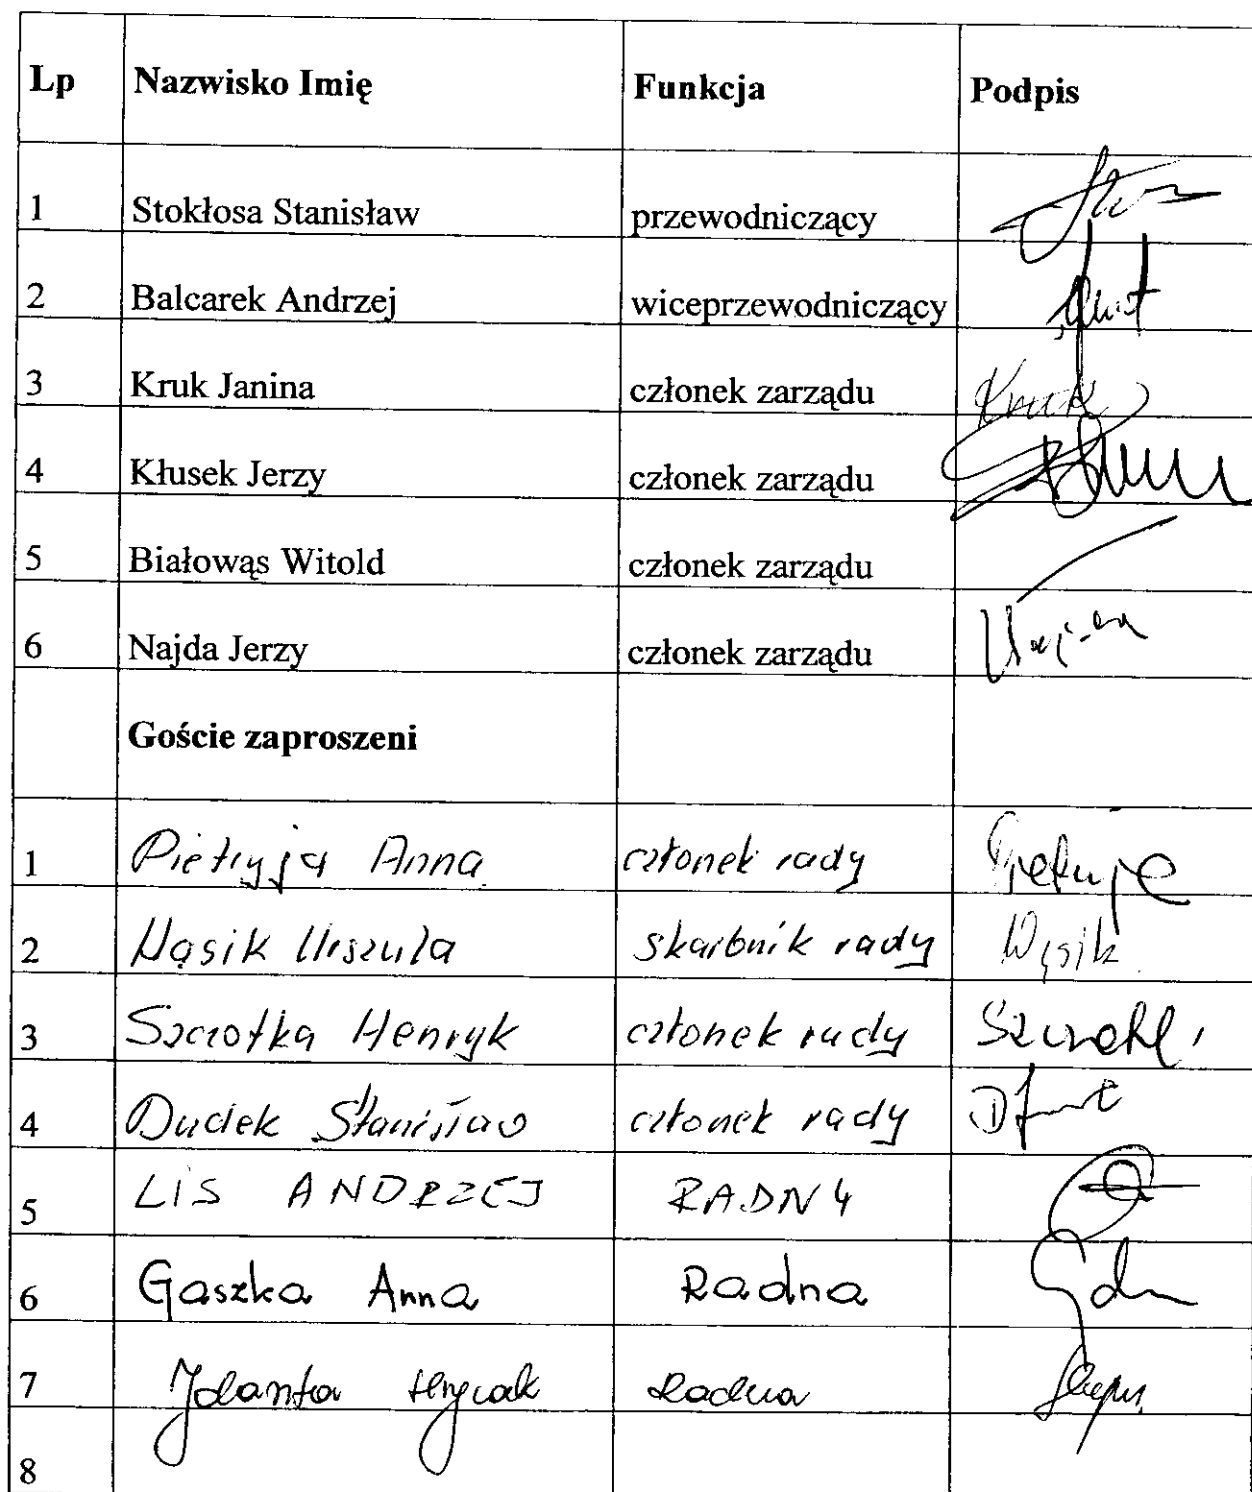 Lp Nazwisko Imię Funkcja Podpis
1 Stokłosa Stanisław przewodniczący
2 Balcarek Andrzej wiceprzewodniczący
3 Kruk Janina członek zarządu Kruk
4 Kłusek Jerzy członek zarządu
5 Białowąs Witold członek zarządu
6 Najda Jerzy członek zarządu
Goście zaproszeni
1 Pietryja Anna członek rady
2 Wąsik Urszula skarbnik rady Wąsik
3 Szczotka Henryk członek rady
4 Dudek Stanisław członek rady
5 LIS ANDRZEJ RADNY
6 Gaszka Anna Radna
7 Jolanta Hrycak Radna
8